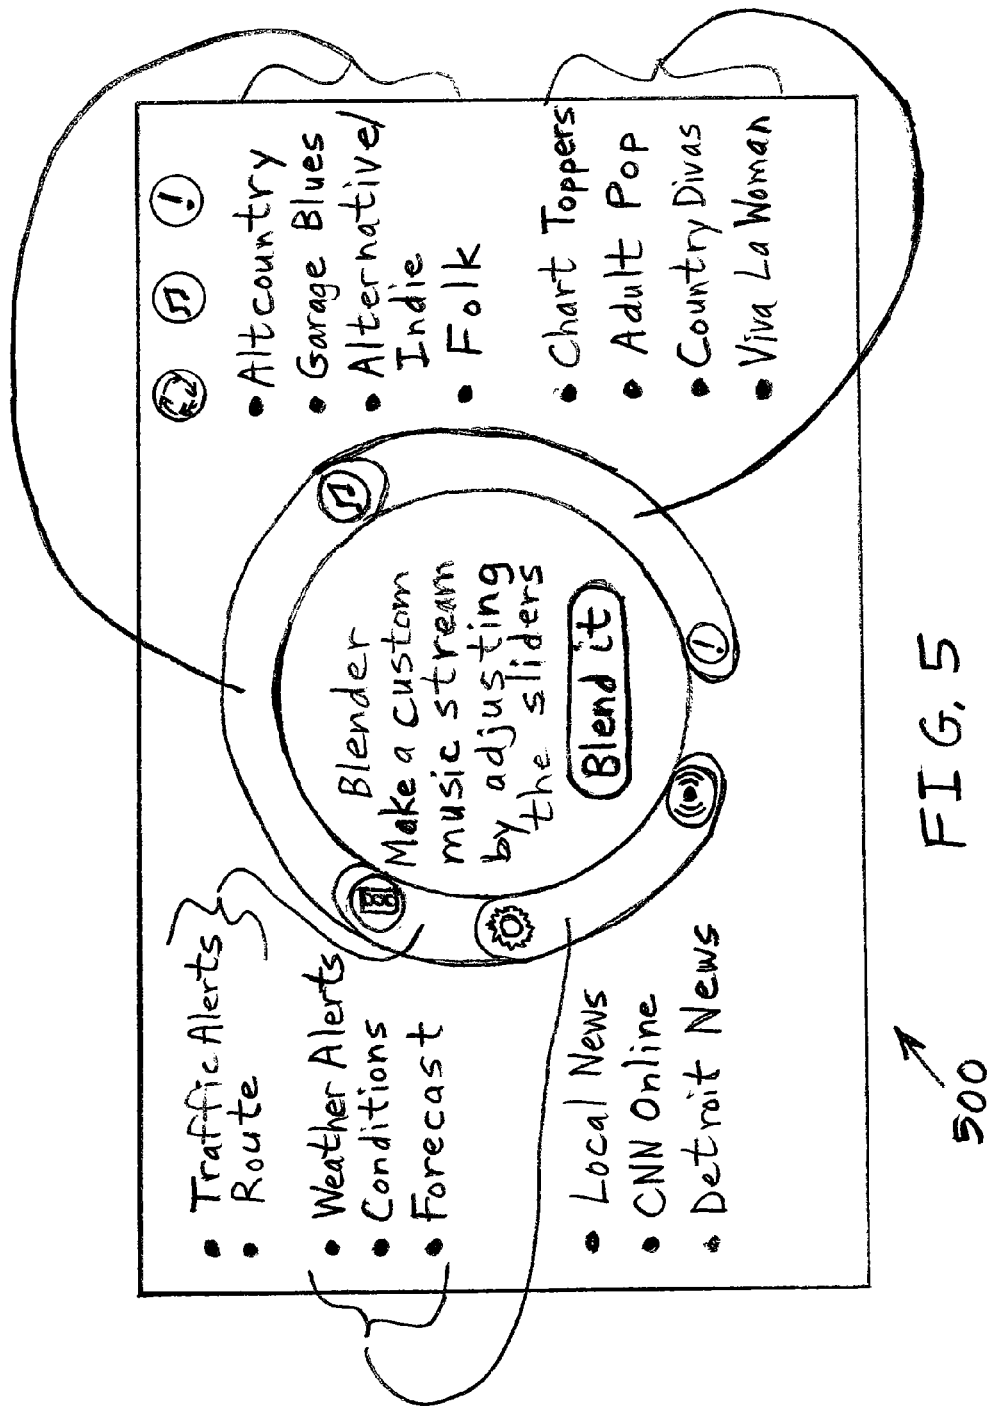 • Traffic Alerts
• Route
• Weather Alerts
• Conditions
• Forecast
• Local News
• CNN Online
• Detroit News
Blender
Make a custom
music stream
by adjusting
the sliders
Blend it
!
• Altcountry
• Garage Blues
• Alternative/
Indie
• Folk
• Chart Toppers
• Adult Pop
• Country Divas
• Viva La Woman
!
500
FIG. 5